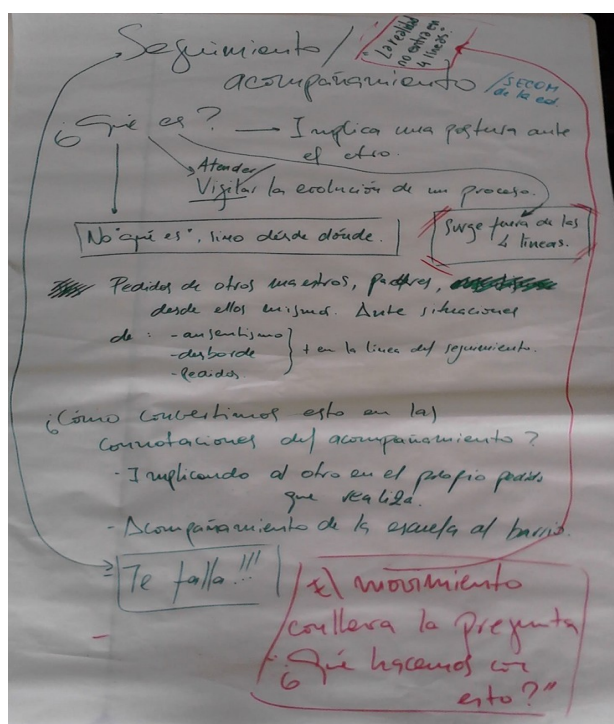 Seguimiento /
"La realidad
no entra en
4 líneas."
acompañamiento
/SECOM
de la ed.
¿Qué es? → Implica una postura ante
el otro.
Atender/
Vigilar la evolución de un proceso.
No "qué es", sino desde dónde.
Surge fuera de las
4 líneas.
Pedidos de otros maestros, padres,
desde ellos mismos. Ante situaciones
de: - ausentismo
- desborde
- pedidos
} + en la línea del seguimiento.
¿Cómo convertimos esto en las
connotaciones del acompañamiento?
- Implicando al otro en el propio pedido
que realiza.
- Acompañamiento de la escuela al barrio.
Te falla!!!
El movimiento
conlleva la pregunta
"¿Qué hacemos con
esto?"